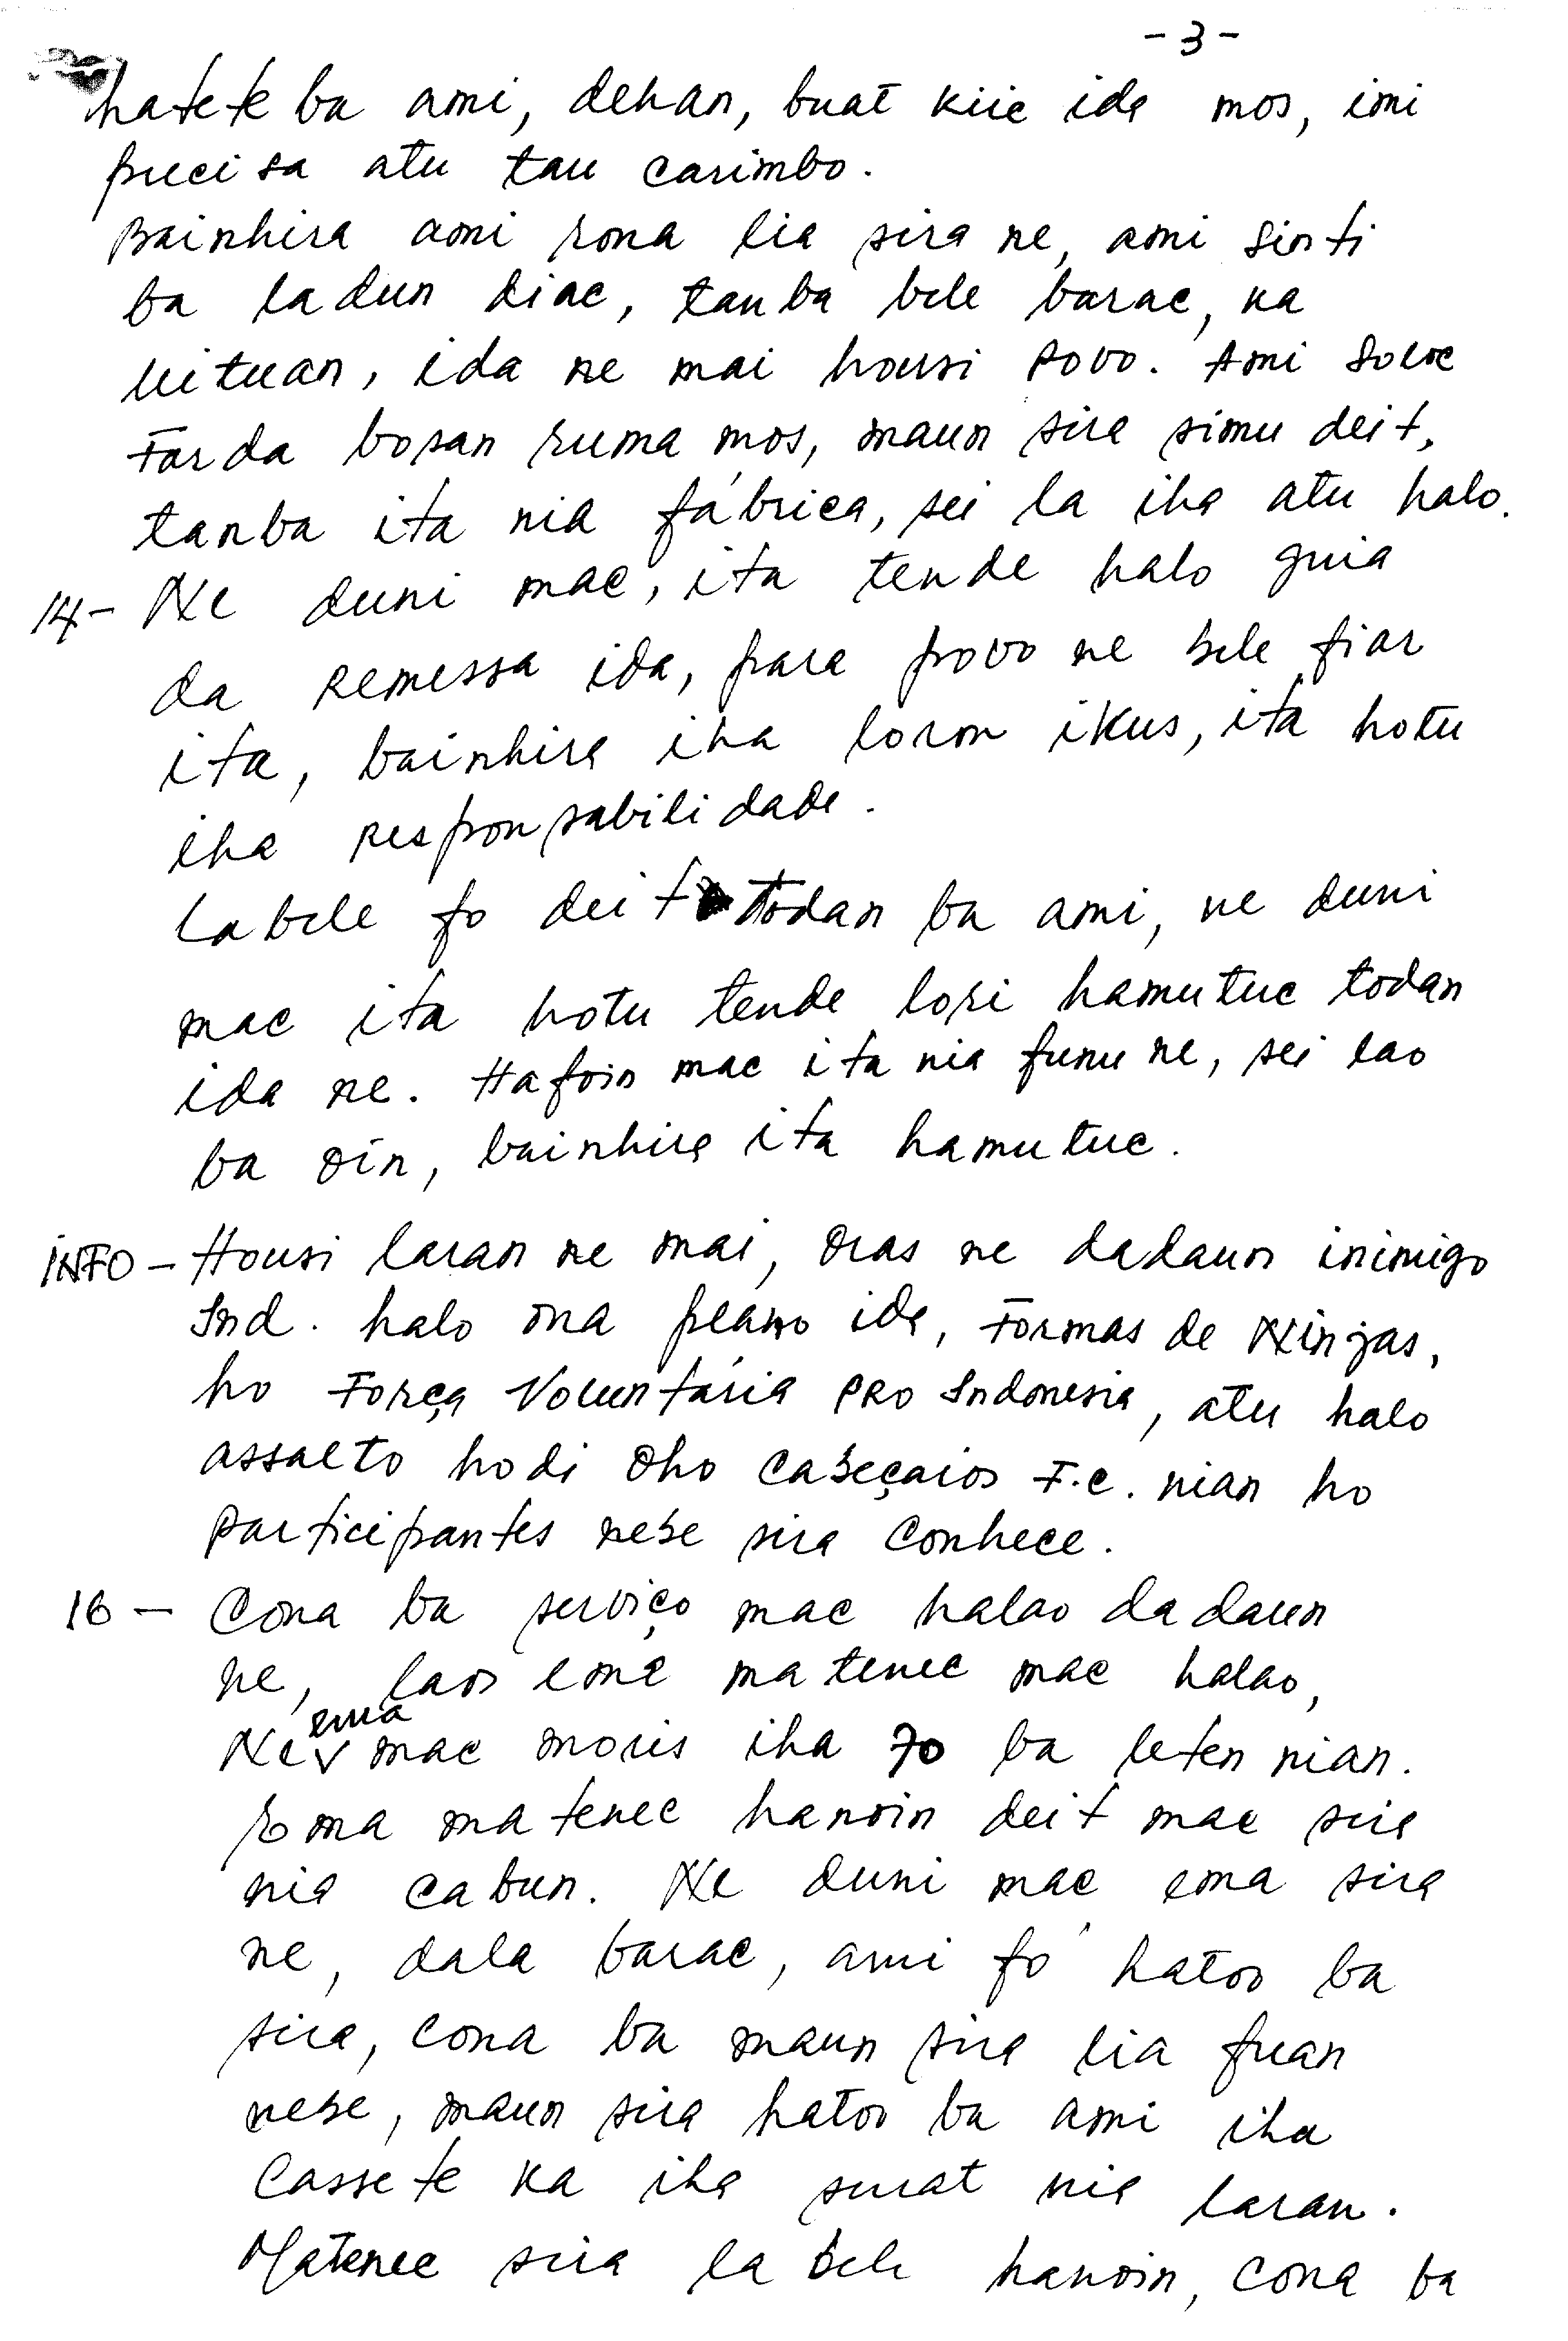 - 3 -
hatete ba ami, dehan, buat kiic ida mos, imi
precisa atu tau carimbo.
Bainhira ami rona lia sira ne, ami sinti
ba ladun diac, tanba bele barac, ka
uituan, ida ne mai housi povo. Ami soloc
Farda bosan ruma mos, maun sira simu deit,
tanba ita nia fábrica, sei la iha atu halo.
14- Ne duni mac, ita tende halo guia
da remessa ida, para povo ne bele fiar
ita, bainhira iha loron ikus, ita hotu
iha responsabilidade.
Labele fo deit todan ba ami, ne duni
mac ita hotu tende lori hamutuc todan
ida ne. Hafoin mac ita nia funu ne, sei lao
ba oin, bainhira ita hamutuc.
INFO - Housi laran ne mai, oras ne dadaun inimigo
Ind. halo ona plano ida, Formas de Ninjas,
ho Força Voluntária PRO Indonesia, atu halo
assalto hodi oho cabeçaios F.C. nian ho
participantes nebe sira conhece.
16 - Cona ba serviço mac halao dadaun
ne, laos ema matenec mac halao,
Ne ema mac moris iha 70 ba leten nian.
Ema matenec hanoin deit mac sira
nia cabun. Ne duni mac ema sira
ne, dala barac, ami fó hatoo ba
sira, cona ba maun sira lia fuan
nebe, maun sira hatoo ba ami iha
Cassete ka iha surat nia laran.
Matenec sira la bele hanoin, cona ba